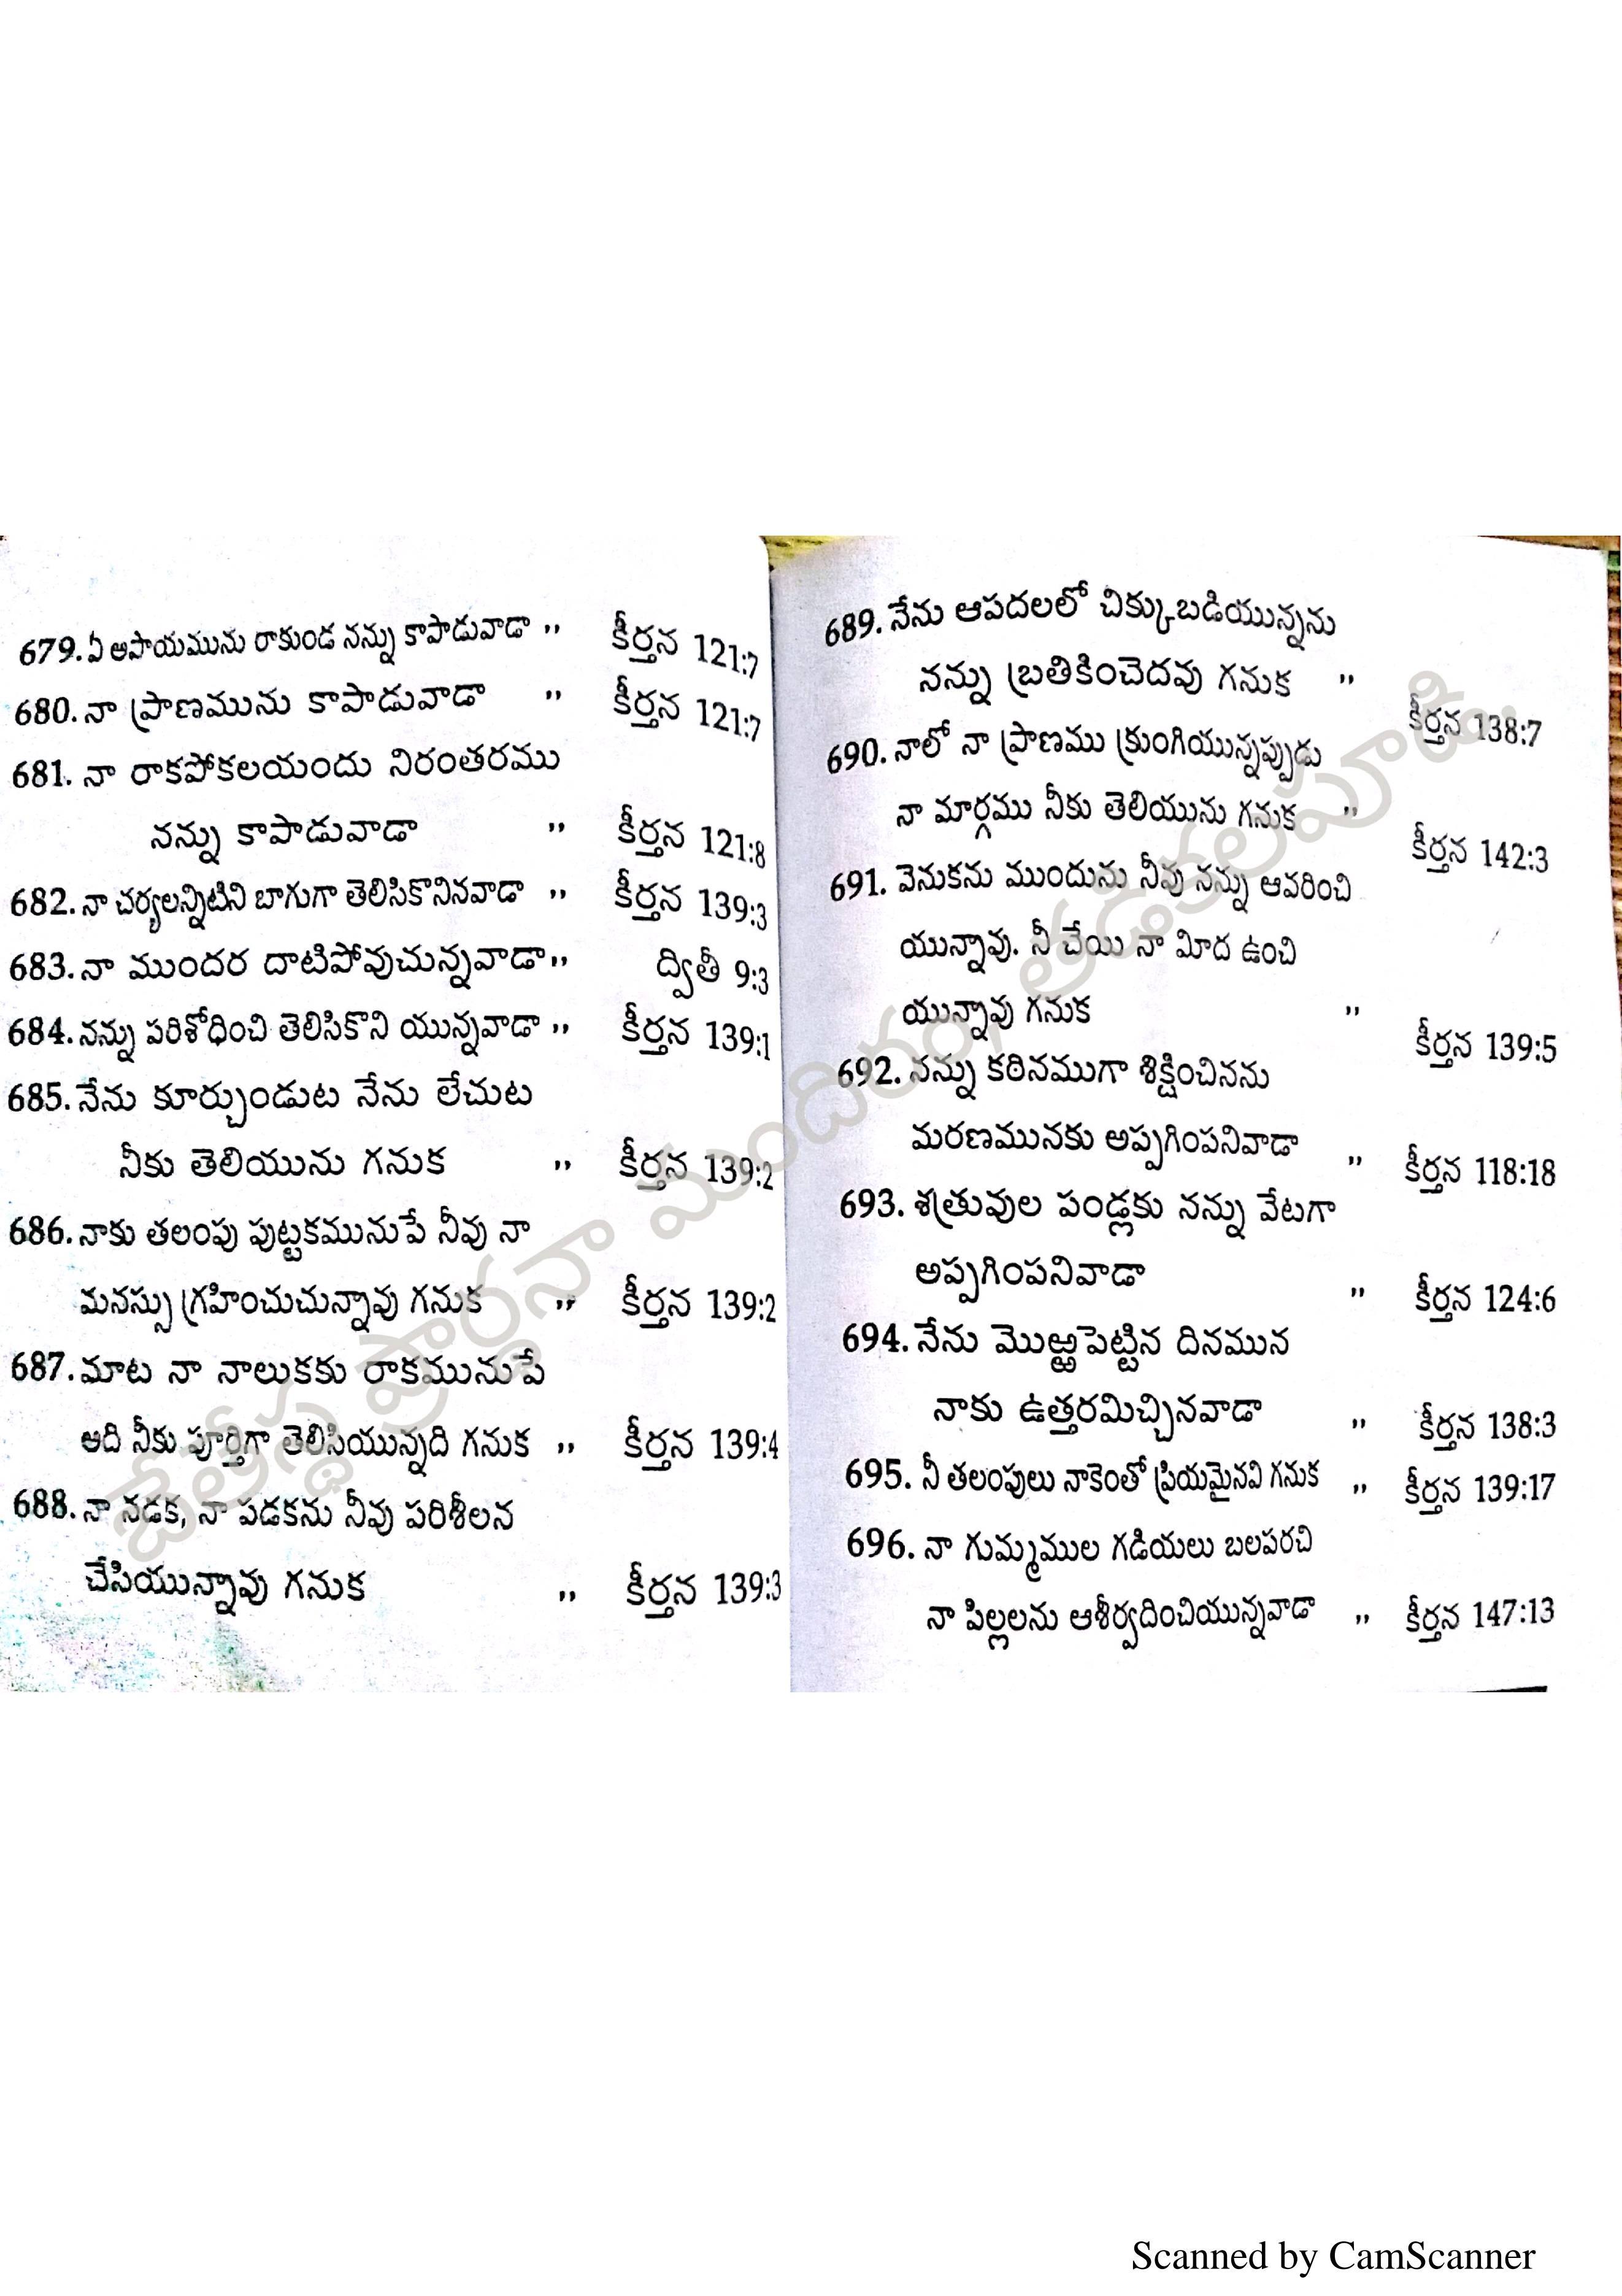 679. ఏ అపాయమును రాకుండ నన్ను కాపాడువాడా ,, కీర్తన 121:7
680. నా ప్రాణమును కాపాడువాడా ,, కీర్తన 121:7
681. నా రాకపోకలయందు నిరంతరము
నన్ను కాపాడువాడా ,, కీర్తన 121:8
682. నా చర్యలన్నిటిని బాగుగా తెలిసికొనినవాడా ,, కీర్తన 139:3
683. నా ముందర దాటిపోవుచున్నవాడా ,, ద్వితీ 9:3
684. నన్ను పరిశోధించి తెలిసికొని యున్నవాడా ,, కీర్తన 139:1
685. నేను కూర్చుండుట నేను లేచుట
నీకు తెలియును గనుక ,, కీర్తన 139:2
686. నాకు తలంపు పుట్టకమునుపే నీవు నా
మనస్సు గ్రహించుచున్నావు గనుక ,, కీర్తన 139:2
687. మాట నా నాలుకకు రాకమునుపే
అది నీకు పూర్తిగా తెలిసియున్నది గనుక ,, కీర్తన 139:4
688. నా నడక, నా పడకను నీవు పరిశీలన
చేసియున్నావు గనుక ,, కీర్తన 139:3
689. నేను ఆపదలలో చిక్కుబడియున్నను
నన్ను బ్రతికించెదవు గనుక ,, కీర్తన 138:7
690. నాలో నా ప్రాణము క్రుంగియున్నప్పుడు
నా మార్గము నీకు తెలియును గనుక ,, కీర్తన 142:3
691. వెనుకను ముందును నీవు నన్ను ఆవరించి
యున్నావు. నీ చేయి నా మీద ఉంచి
యున్నావు గనుక ,, కీర్తన 139:5
692. నన్ను కఠినముగా శిక్షించినను
మరణమునకు అప్పగింపనివాడా ,, కీర్తన 118:18
693. శత్రువుల పండ్లకు నన్ను వేటగా
అప్పగింపనివాడా ,, కీర్తన 124:6
694. నేను మొఱ్ఱపెట్టిన దినమున
నాకు ఉత్తరమిచ్చినవాడా ,, కీర్తన 138:3
695. నీ తలంపులు నాకెంతో ప్రియమైనవి గనుక ,, కీర్తన 139:17
696. నా గుమ్మముల గడియలు బలపరచి
నా పిల్లలను ఆశీర్వదించియున్నవాడా ,, కీర్తన 147:13
ప్రార్థనా మందిరం,
Scanned by CamScanner